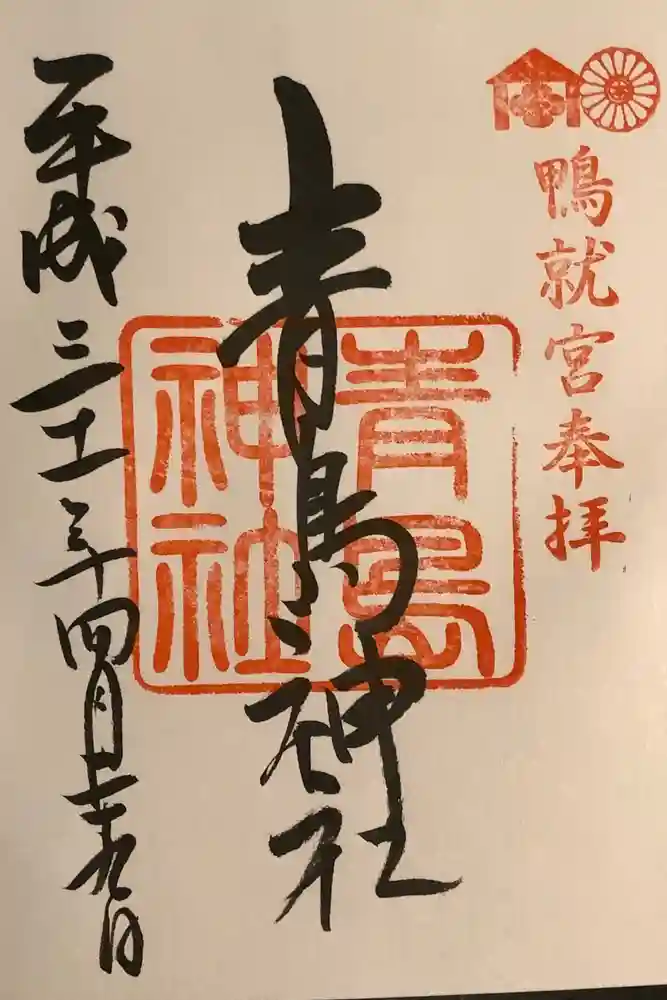 鴨就宮奉拝
青島神社
青島
神社
平成三十一年四月二十九日